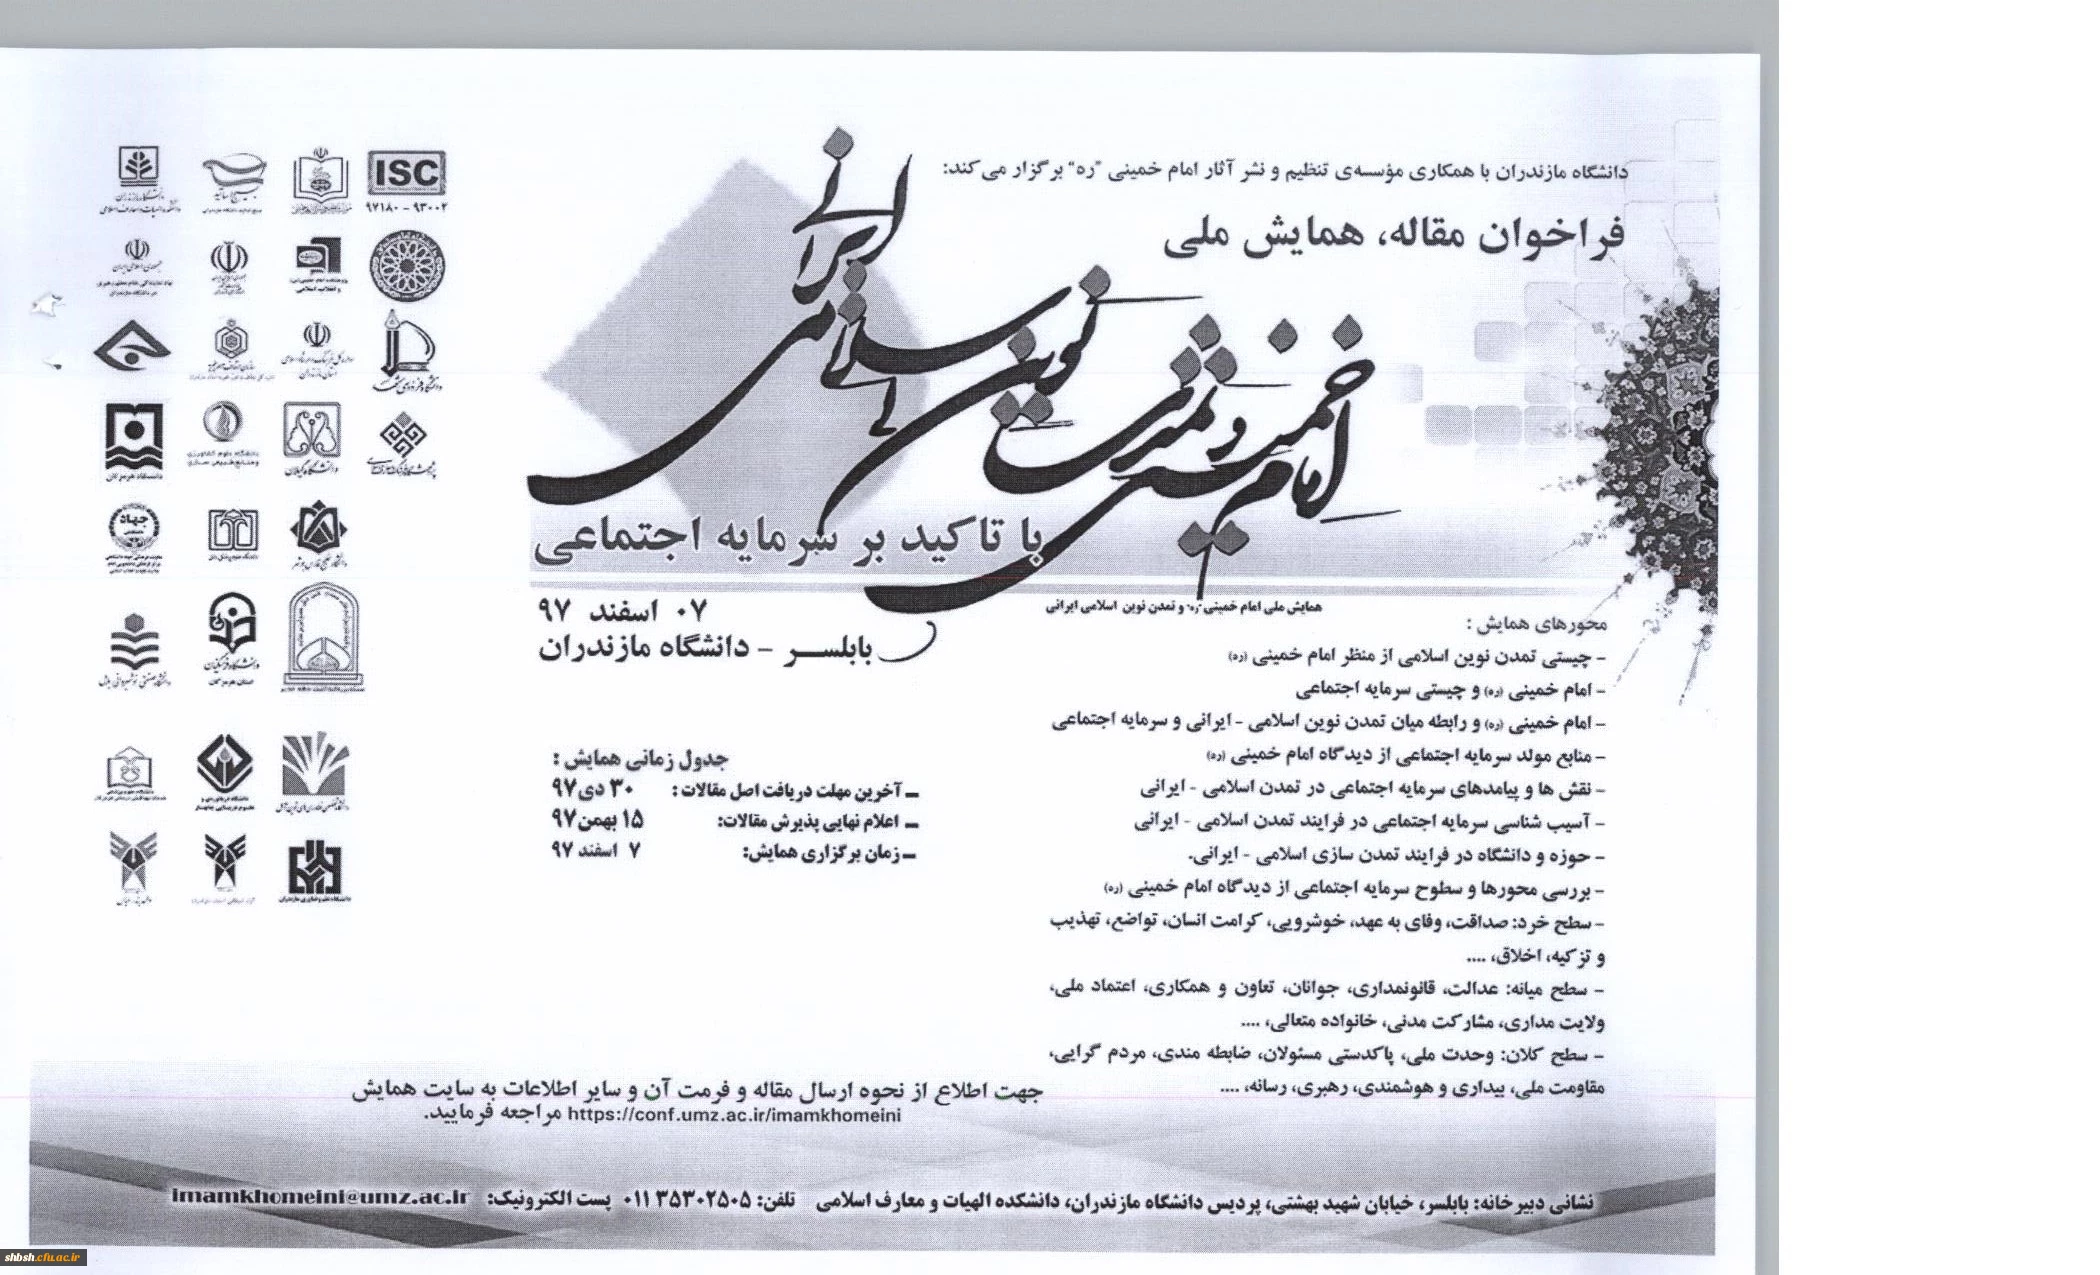 دانشگاه مازندران با همکاری مؤسسه‌ی تنظیم و نشر آثار امام خمینی "ره" برگزار می‌کند:
فراخوان مقاله، همایش ملی
امام خمینی و تمدن نوین اسلامی ایرانی
با تاکید بر سرمایه اجتماعی
همایش ملی امام خمینی "ره" و تمدن نوین اسلامی ایرانی
۰۷ اسفند ۹۷
بابلسر - دانشگاه مازندران
محورهای همایش :
- چیستی تمدن نوین اسلامی از منظر امام خمینی (ره)
- امام خمینی (ره) و چیستی سرمایه اجتماعی
- امام خمینی (ره) و رابطه میان تمدن نوین اسلامی - ایرانی و سرمایه اجتماعی
- منابع مولد سرمایه اجتماعی از دیدگاه امام خمینی (ره)
- نقش ها و پیامدهای سرمایه اجتماعی در تمدن اسلامی - ایرانی
- آسیب شناسی سرمایه اجتماعی در فرایند تمدن اسلامی - ایرانی
- حوزه و دانشگاه در فرایند تمدن سازی اسلامی - ایرانی.
- بررسی محورها و سطوح سرمایه اجتماعی از دیدگاه امام خمینی (ره)
- سطح خرد: صداقت، وفای به عهد، خوشرویی، کرامت انسان، تواضع، تهذیب
و تزکیه، اخلاق، ....
- سطح میانه: عدالت، قانونمداری، جوانان، تعاون و همکاری، اعتماد ملی،
ولایت مداری، مشارکت مدنی، خانواده متعالی، ....
- سطح کلان: وحدت ملی، پاکدستی مسئولان، ضابطه مندی، مردم گرایی،
مقاومت ملی، بیداری و هوشمندی، رهبری، رسانه، ....
جدول زمانی همایش :
- آخرین مهلت دریافت اصل مقالات : ۳۰ دی۹۷
- اعلام نهایی پذیرش مقالات: ۱۵ بهمن۹۷
- زمان برگزاری همایش: ۷ اسفند ۹۷
ISC
۹۷۱۸۰ - ۹۳۰۰۲
و انقلاب اسلامی
دانشگاه گیلان
جهاد
جهت اطلاع از نحوه ارسال مقاله و فرمت آن و سایر اطلاعات به سایت همایش
https://conf.umz.ac.ir/imamkhomeini مراجعه فرمایید.
نشانی دبیرخانه: بابلسر، خیابان شهید بهشتی، پردیس دانشگاه مازندران، دانشکده الهیات و معارف اسلامی تلفن: ۰۱۱۳۵۳۰۲۵۰۵ پست الکترونیک: imamkhomeini@umz.ac.ir
shbsh.cfu.ac.ir